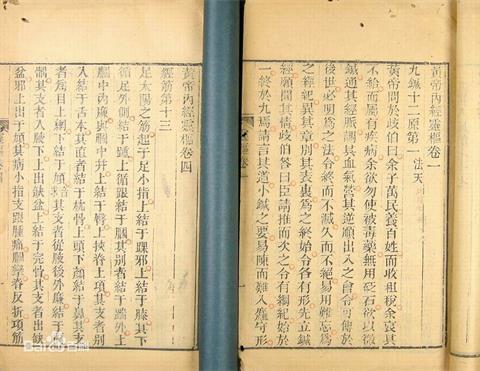 黃帝內經靈樞卷一
九鍼十二原第一 法天
黃帝問於歧伯曰余子萬民養百姓而收租稅余哀其
不給而屬有疾病余欲勿使被毒藥無用砭石欲以微
鍼通其經脈調其血氣營其逆順出入之會令可傳於
後世必明爲之法令終而不滅久而不絕易用難忘爲
之經紀異其章別其表裏爲之終始令各有形先立鍼
經願聞其情歧伯答曰臣請推而次之令有綱紀始於
一終於九焉請言其道小鍼之要易陳而難入麤守形
黃帝內經靈樞卷四
經筋第十三
足太陽之筋起于足小指上結于踝邪上結于膝其下
循足外側結于踵上循跟結于膕其別者結于腨外上
膕中內廉與膕中并上結于臀上挾脊上項其支者別
入結于舌本其直者結于枕骨上頭下顏結于鼻其支
者爲目上網下結于頄其支者從腋後外廉結于肩
髃其支者入腋下上出缺盆上結于完骨其支者出缺
盆邪上出于頄其病小指支跟腫痛膕攣脊反折項筋
Baidu百科